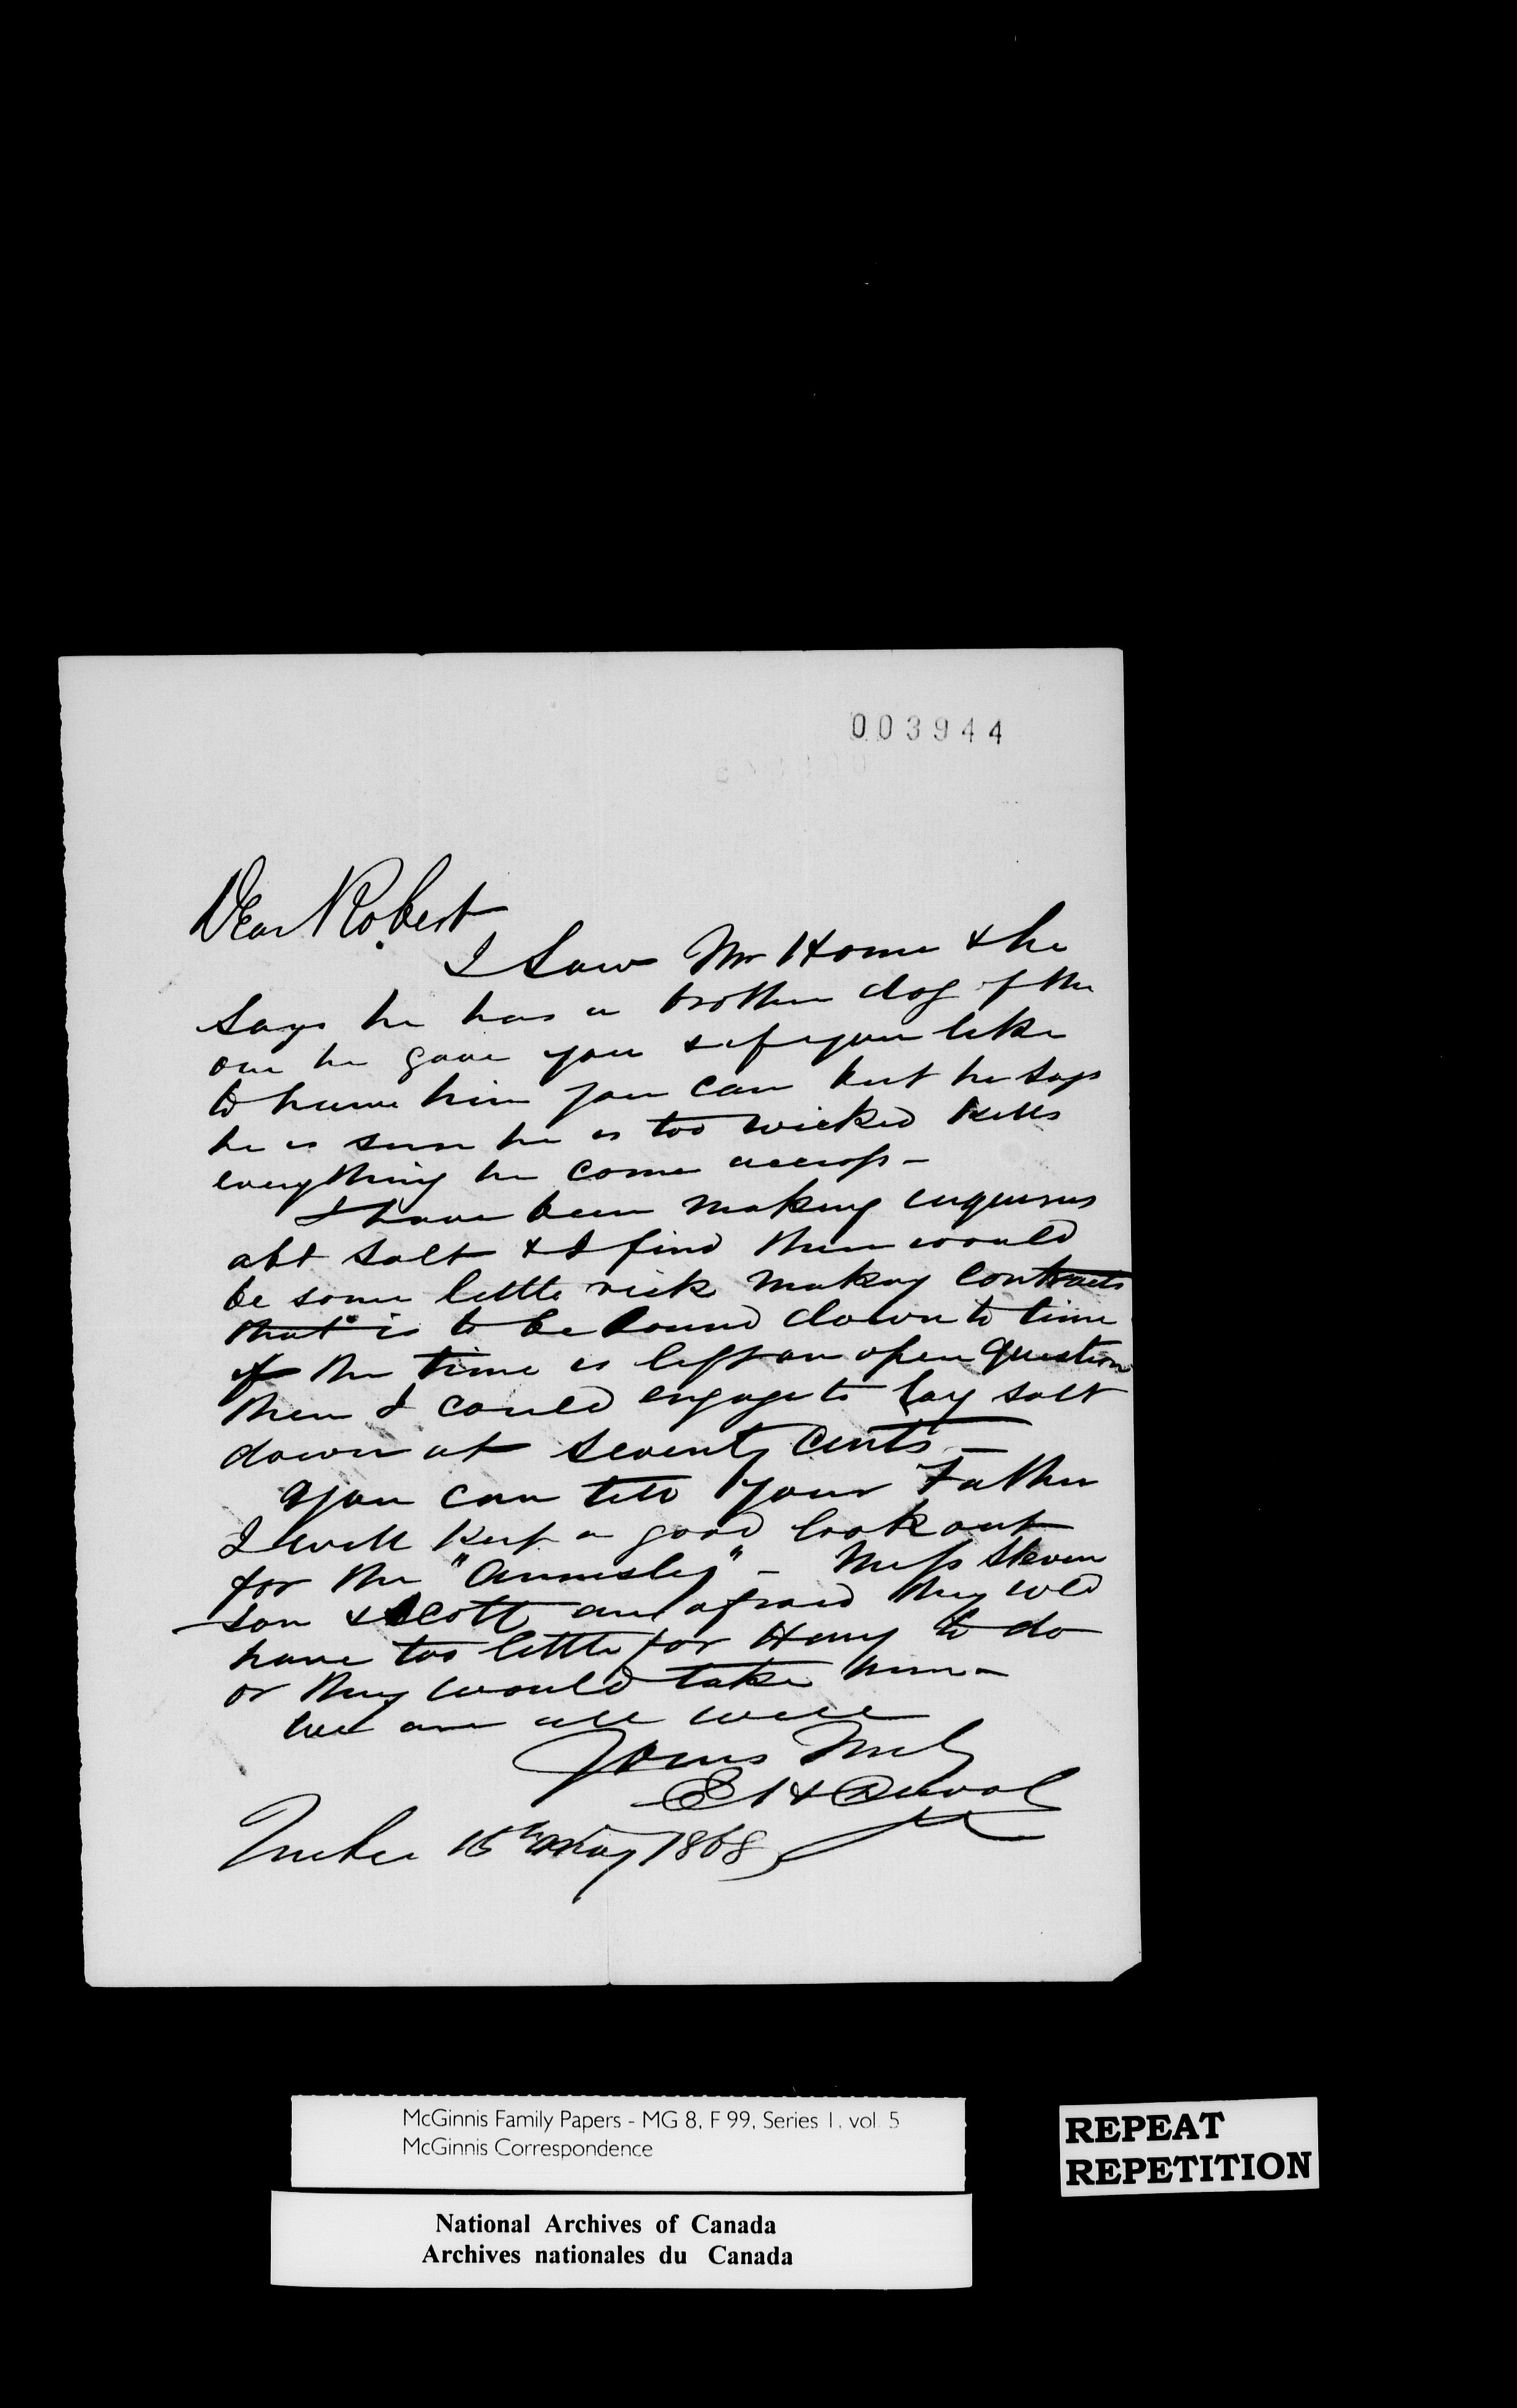 003944
Dear Robert
I saw Mr Home & he
says he has a brother dog of the
one he gave you & if you like
to have him you can but he says
he is sure he is too wicked kills
everything he come accross -
I have been making enquiries
abt salt & I find there would
be some little risk making contracts
that is to be bound down to time
if the time is left an open question
then I could engage to lay salt
down at seventy cents -
You can tell your Father
I will keep a good look out
for the "Annesley" - Mess Steven
son & Scott are afraid they wld
have too little for Harry to do
or they would take him -
We are all well
Yours truly
E H Duval
Quebec 15th May 1868
McGinnis Family Papers - MG 8, F 99, Series 1, vol 5
McGinnis Correspondence
REPEAT
REPETITION
National Archives of Canada
Archives nationales du Canada